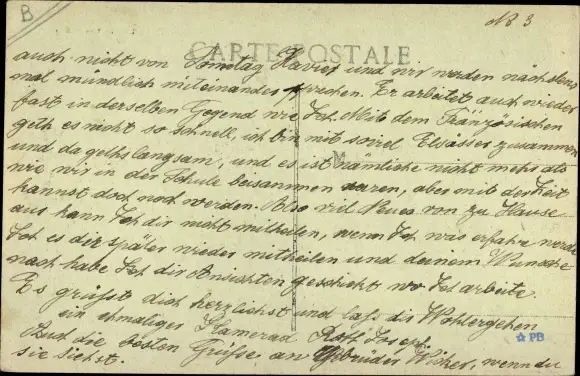 B
No 3
CARTE POSTALE
auch nicht von Sonntag Xavier und wir werden nächstens
mal mündlich miteinander sprechen. Er arbeitet auch wieder
fast in derselben Gegend wie Ich. Mit dem Französischen
geth es nicht so schnell, ich bin mit soviel Elsässer zusammen
und da geths langsam, und es ist nämliche nicht mehr als
wie wir in der Schule beisammen waren, aber mit der Zeit
kannst doch noch werden. Also viel Neues von zu Hause
aus kann Ich dir nicht mitheilen, wenn Ich was erfahre werde
Ich es dir später wieder mitheilen und deinem Wunsche
nach habe Ich dir Ansichten geschickt wo Ich arbeite.
Es grüsst dich herzlichst und laß dir Wohlergehen
ein ehmaliger Kamerad Josep.
Auch die besten Grüsse an Gebrüder, wenn du
sie siehst.
PB